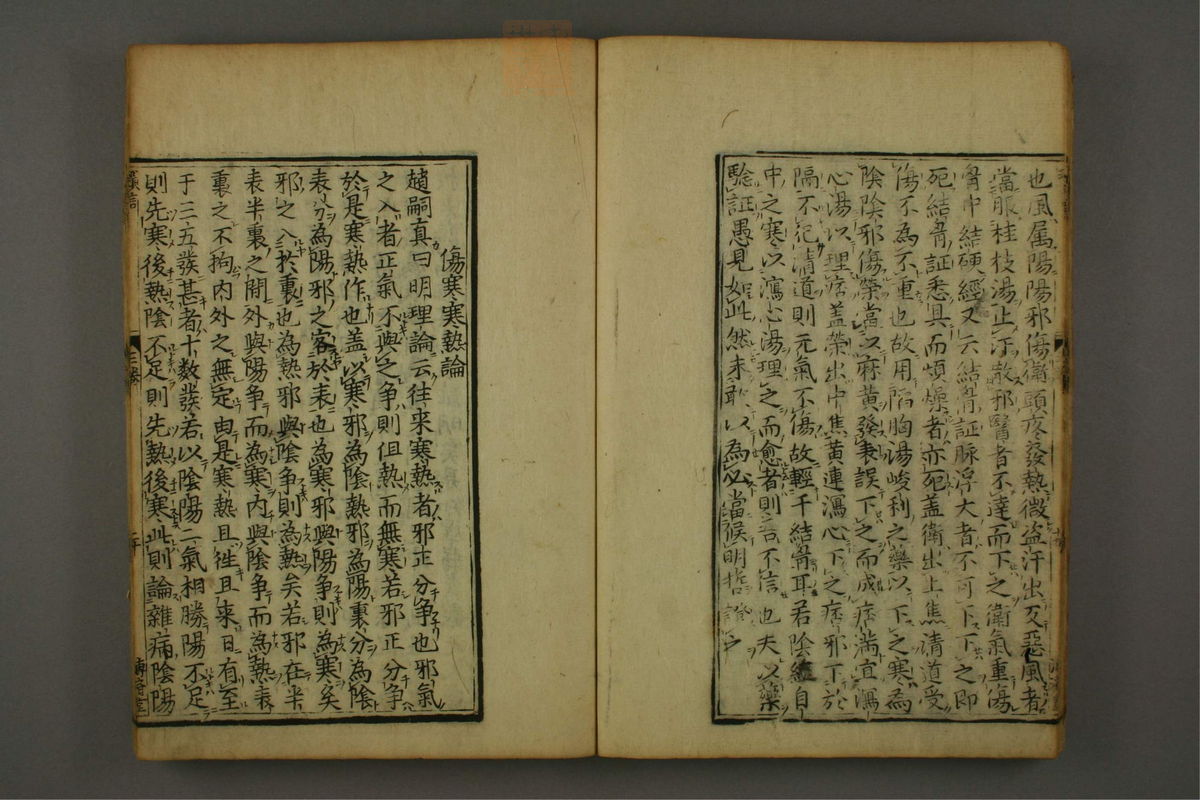 也風属陽陽邪傷衛頭疼發熱微盗汗出反惡風者
當服桂枝湯止汗散邪醫者不達而下之衛氣重傷
胷中結硬經又云結胷証脉浮大者不可下下之即
死結胷証悉具而煩燥者亦死蓋衛出上焦清道受
傷不為不重也故用陷胸湯峻利之藥以下之寒為
陰陰邪傷榮當以麻黄發表誤下之而成痞滿宜瀉
心湯以理痞蓋榮出中焦黄連瀉心下之痞邪下於
隔不犯清道則元氣不傷故輕于結胷耳若陰經自
中之寒以瀉心湯理之而愈者則吾不信也夫以藥
驗証愚見如此然未敢以為必當候明哲證
傷寒寒熱論
趙嗣真曰明理論云往来寒熱者邪正分争也邪氣
之入者正氣不與之争則但熱而無寒若邪正分争
於是寒熱作也盖以寒邪為陰熱邪為陽裏分為陰
表分為陽邪之客於表也為寒邪與陽争則為寒矣
邪之入於裏也為熱邪與陰争則為熱矣若邪在半
表半裏之間外與陽争而為寒内與陰争而為熱表
裏之不拘内外之無定由是寒熱且徃且来日有至
于三五發甚者十数發若以陰陽二氣相勝陽不足
則先寒後熱陰不足則先熱後寒此則論雜病陰陽
三巻
二十